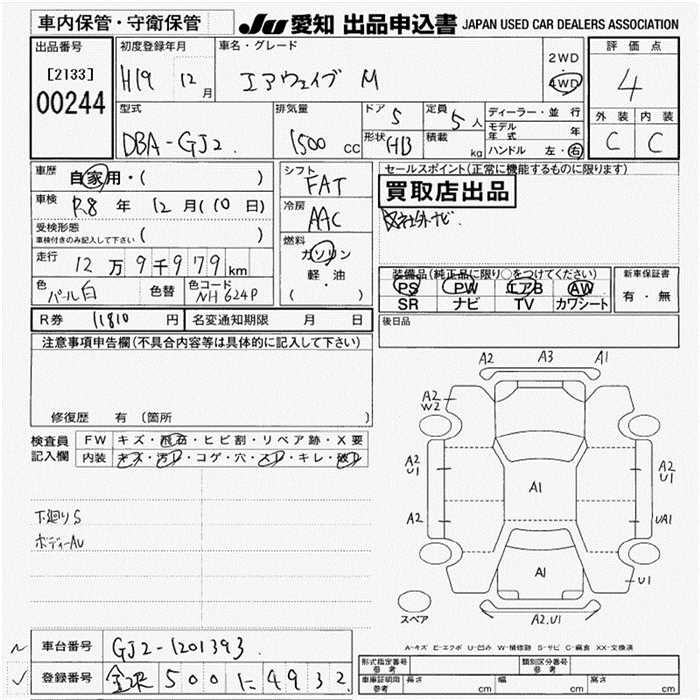 車内保管・守衛保管
JU 愛知 出品申込書 JAPAN USED CAR DEALERS ASSOCIATION
出品番号
[2133]
00244
初度登録年月
H19 12月
車名・グレード
エアウェイブ M
2WD
4WD
評価点
4
外装 内装
C C
型式
DBA-GJ2
排気量
1500 cc
ドア 5
形状 HB
定員 5人
積載 kg
ディーラー・並行
モデル年式 年
ハンドル 左・右
車歴 自家用・( )
車検 R8年 12月(10日)
受検形態
車検付きのみ記入して下さい ( )
走行 12万9千979km
色 パール白 色替
色コード NH624P
シフト
FAT
冷房
AAC
燃料
ガソリン
軽・油
( ・ )
セールスポイント(正常に機能するものに限ります)
買取店出品
社外ナビ
装備品(純正品に限り○をつけてください)
PS PW エアB AW
SR ナビ TV カワシート
新車保証書
有・無
R券 11810 円 名変通知期限 月 日
後日品
注意事項申告欄(不具合内容等は具体的に記入して下さい)
修復歴 有 (箇所
検査員記入欄
FW キズ・飛石・ヒビ割・リペア跡・X要
内装 キズ・汚レ・コゲ・穴・スレ・キレ・破レ
下廻りS
ボディーAU
A2 A3 A1
A2
W2
A2
U1
A2
U1
A1
A2
UA1
A1
U1
A2.U1
スペア
A-キズ E-エクボ U-凹み W-補修跡 S-サビ C-腐食 XX-交換済
車台番号 GJ2-1201393
登録番号 金沢 500 に 4932
形式指定番号 参考
類別区分番号 参考
車庫証明用 参考 長さ cm 幅 cm 高さ cm